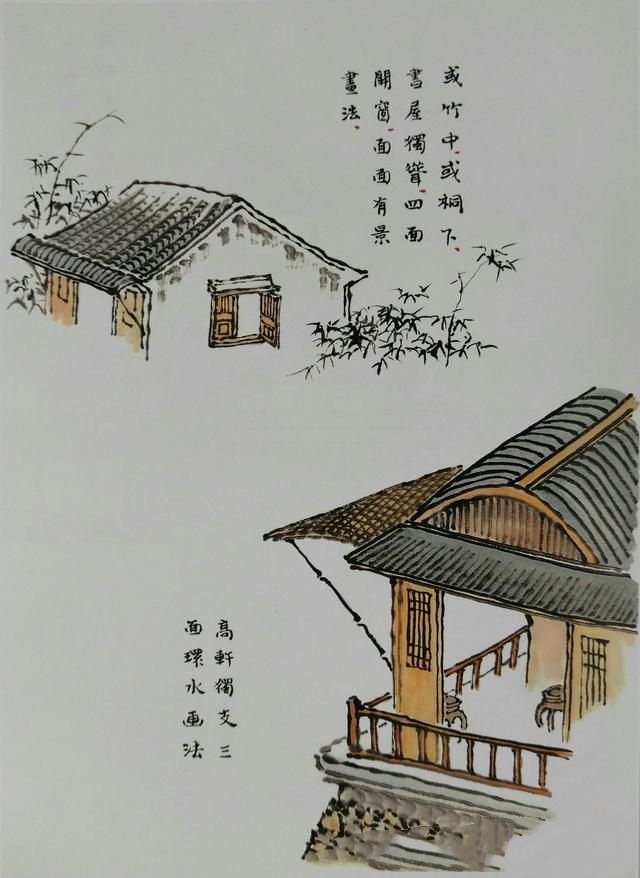 或竹中或桐下
書屋獨聳四面
開窗面面有景
畫法
高軒獨支三
面環水画法